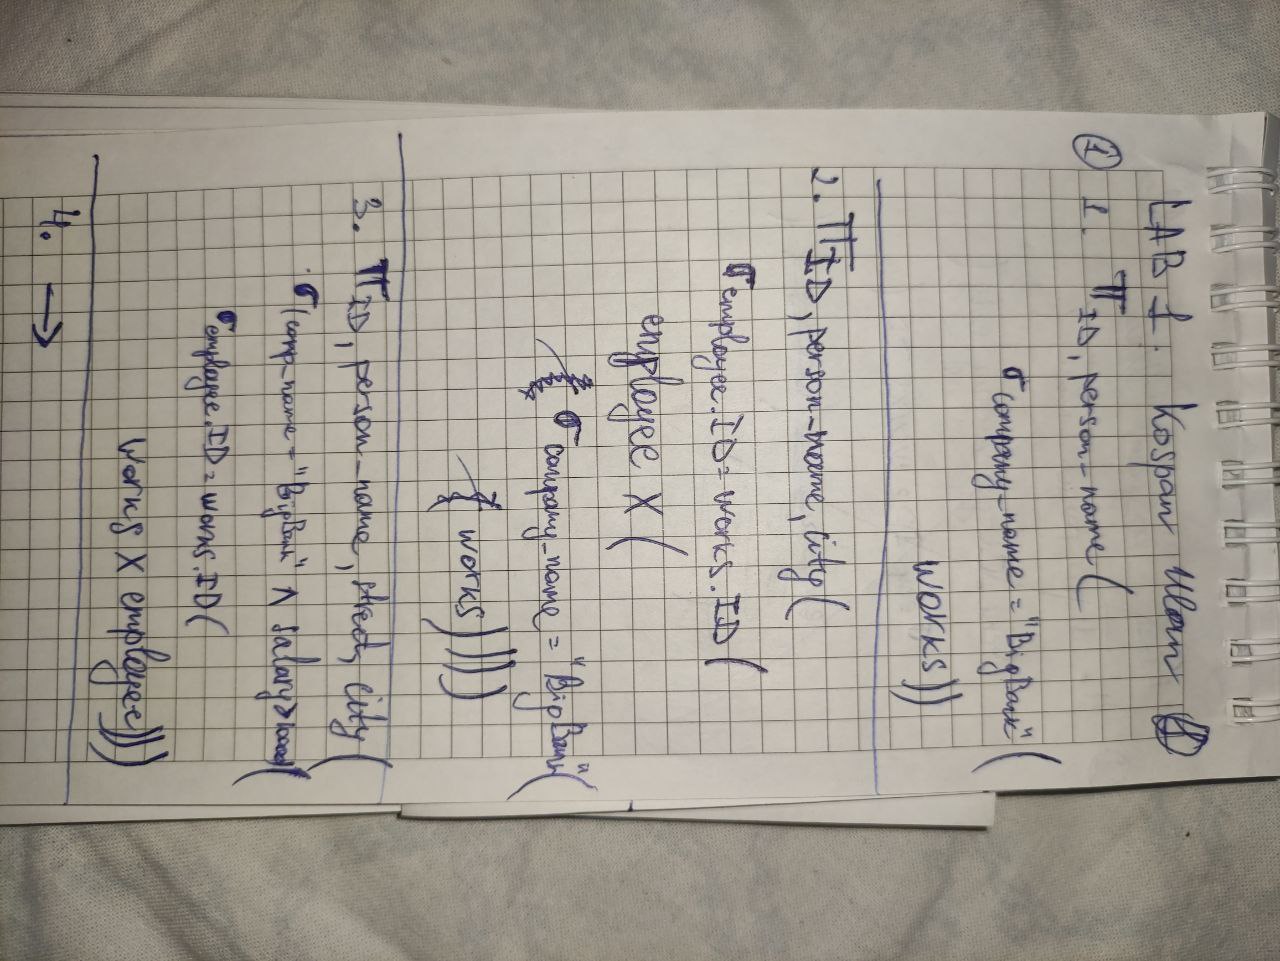 LAB 1. Kospan
① 1. π ID, person-name(
σ company-name = "BigBank" (
works))
2. π ID, person-name, city(
σ employee.ID = works.ID(
employee X (
σ company-name = "BigBank"(
works)))))
3. π ID, person-name, street, city(
σ (comp-name = "BigBank" ∧ salary>10000)(
σ employee.ID = works.ID(
works X employee)))
4. →